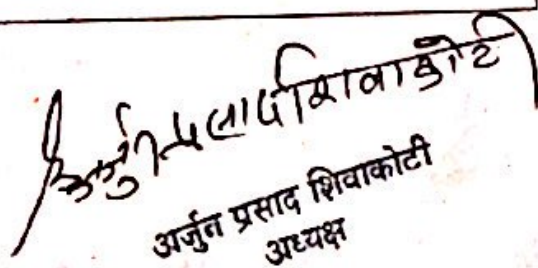 अर्जुन प्रसाद शिवाकोटी
अर्जुन प्रसाद शिवाकोटी
अध्यक्ष